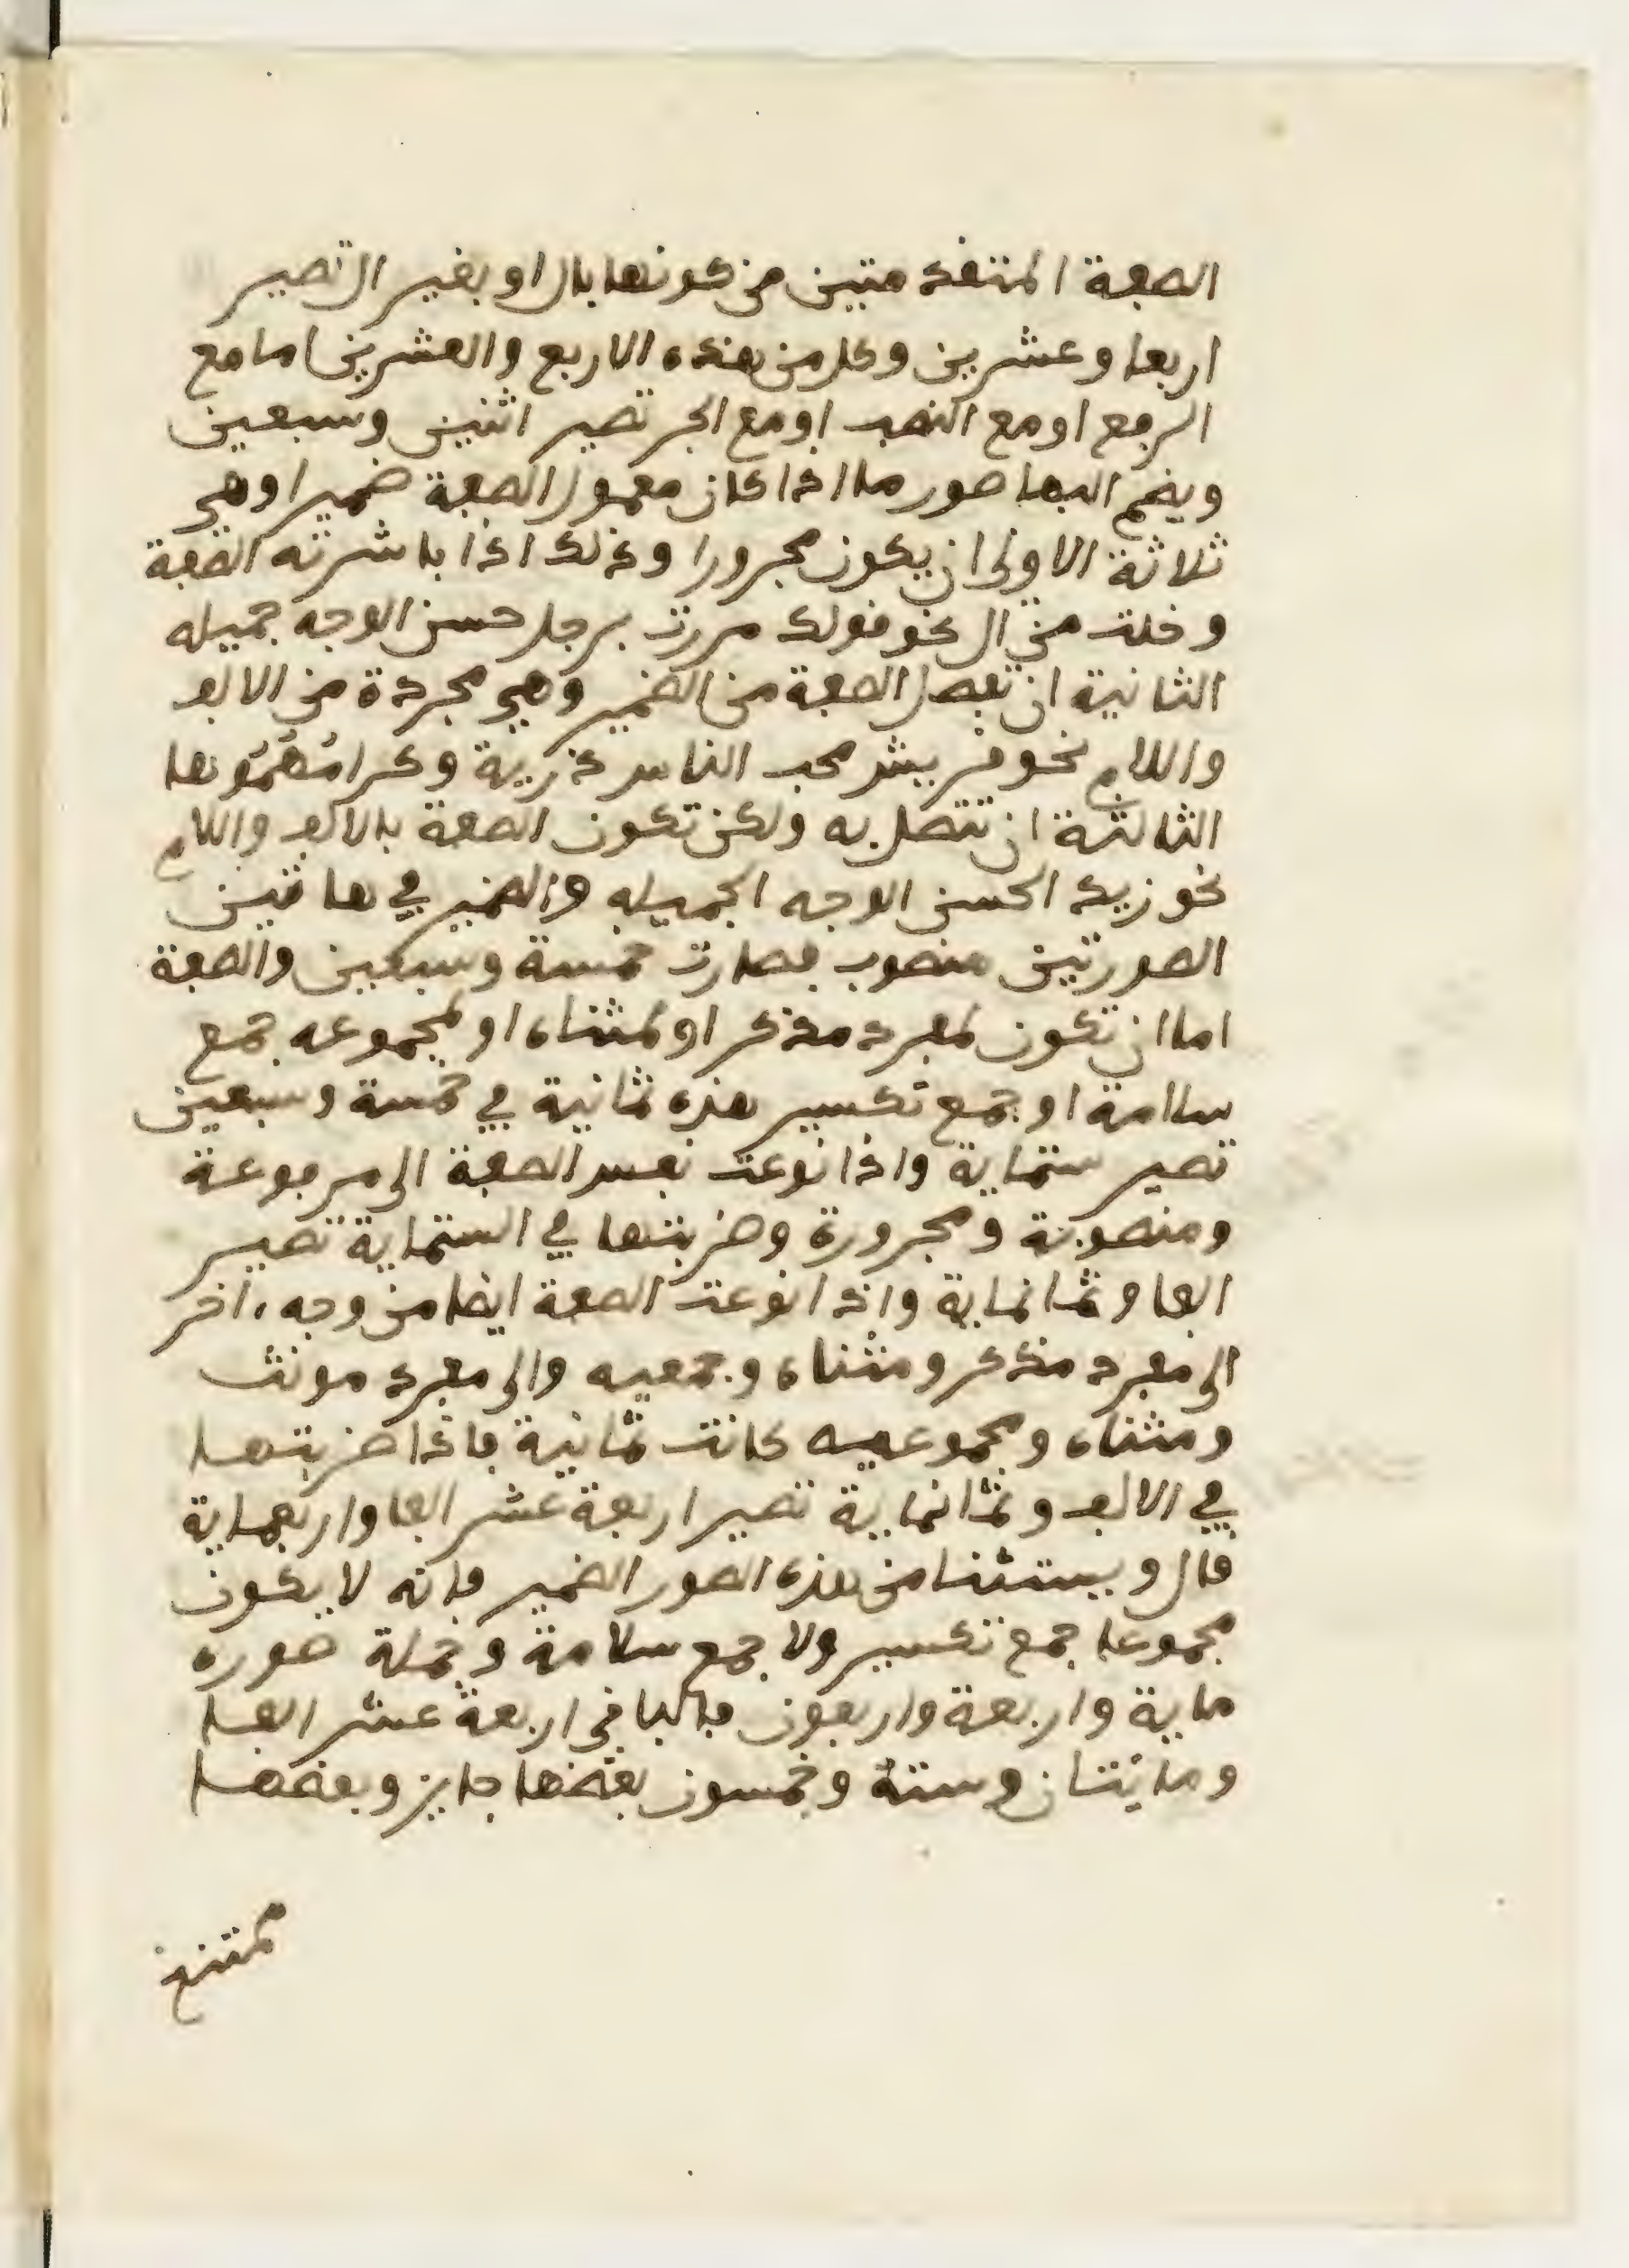 الصفة المتقدمتين من كونها بال او بغير ال تصير
اربعا وعشرين وكل من هذه الاربع والعشرين اما مع
الرفع او مع النصب او مع الجر تصير اثنين وسبعين
ويضم اليها صور ما اذا كان معمول الصفة ضميرا وهي
ثلاثة الاولى ان يكون مجرورا وذلك اذا باشرته الصفة
وخلت من ال نحو قولك مررت برجل حسن الوجه جميله
الثانية ان تفصل الصفة من الضمير وهي مجردة من الالف
واللام نحو قريش محب الناس ذرية وكرامُهُمُوها
الثالثة ان تتصل به ولكن تكون الصفة بالالف واللام
نحو زيد الحسن الوجه الجميله والضمير في هاتين
الصورتين منصوب فصارت خمسة وسبعين والصفة
اما ان تكون لمفرد مذكر او لمثناه او لمجموعه جمع
سلامة او جمع تكسير هذه ثمانية في خمسة وسبعين
تصير ستماية واذا نوعت نفس الصفة الى مرفوعة
ومنصوبة ومجرورة وضربتها في الستماية تصير
الفا وثمانماية واذا نوعت الصفة ايضا من وجه ءاخر
الى مفرد مذكر ومثناه وجمعيه والى مفرد مونث
ومثناه ومجموعيه كانت ثمانية فاذا ضربتها
في الالف وثمانماية تصير اربعة عشر الفا واربعماية
قال ويستثنا من هذه الصور الضمير فانه لا يكون
مجموعا جمع تكسير ولا جمع سلامة وجملة صوره
ماية واربعة واربعون فالباقي اربعة عشر الفا
ومايتان وستة وخمسون بعضها جايز وبعضها
ممتنع